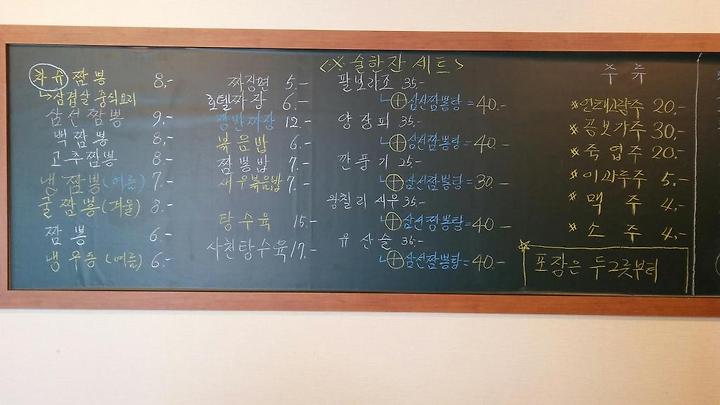 차슈짬뽕 8,-
↳삼겹살 중식요리
삼선짬뽕 9,-
백짬뽕 8,-
고추짬뽕 8,-
냉짬뽕(여름) 7,-
굴짬뽕(겨울) 8.-
짬뽕 6.-
냉우동 (여름) 6.-
짜장면 5.-
호텔짜장 6.-
쟁반짜장 12.-
볶음밥 6.-
짬뽕밥 7.-
새우볶음밥 7.-
탕수육 15.-
사천탕수육 17.-
<※ 술한잔 세트>
팔보라조 35.-
↳⊕삼선짬뽕탕=40.-
양장피 35.-
↳⊕삼선짬뽕탕=40.-
깐풍기 25-
↳⊕삼선짬뽕탕=30-
왕칠리새우 35.-
↳⊕삼선짬뽕탕=40-
유산슬 35-
↳⊕삼선짬뽕탕=40.-
주류
※연태고량주 20.-
※공보가주 30,-
※죽엽주 20.-
※이과두주 5.-
※맥주 4,-
※소주 4,-
※포장은 두그릇부터